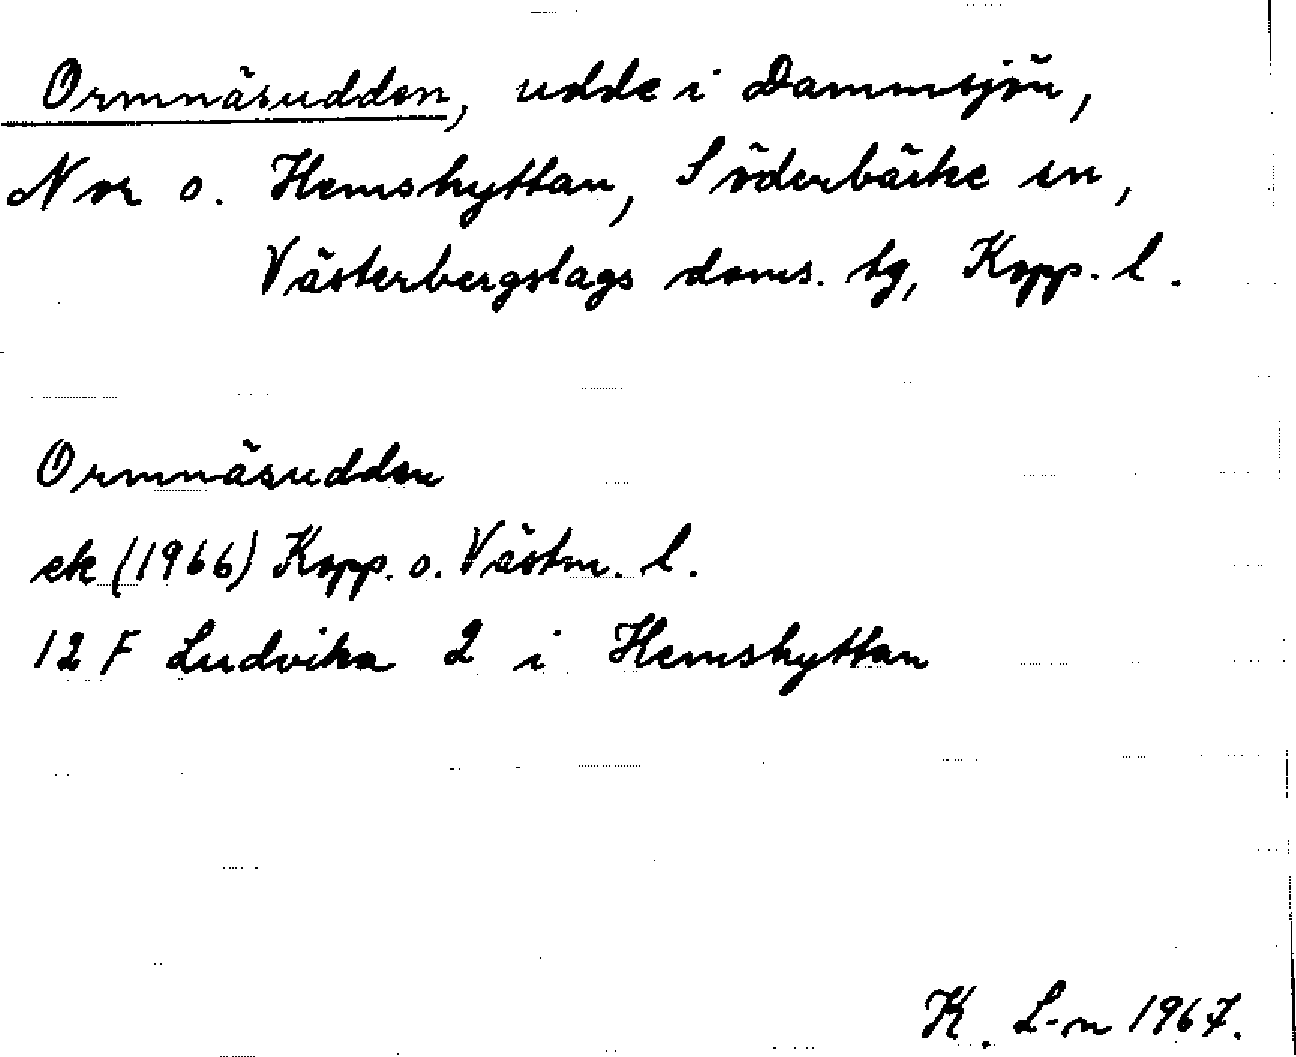 Ormnäsudden, udde i Dammsjön,
N or o. Hemshyttan, Söderbärke sn,
Västerbergslags doms. tg, Kopp. l.
Ormnäsudden
ek (1966) Kopp. o. Västm. l.
12 F Ludvika 2 i Hemshyttan
K. L-n 1967.